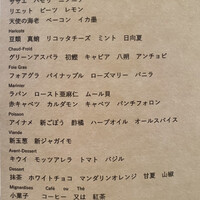 リエット　ビーツ　レモン
天使の海老　ベーコン　イカ墨
Haricots
豆類　真蛸　リコッタチーズ　ミント　日向夏
Chaud-Froid
グリーンアスパラ　初鰹　キャビア　八朔　アンチョビ
Foie Gras
フォアグラ　パイナップル　ローズマリー　バニラ
Mariner
ラパン　ロースト亜麻仁　ムール貝
赤キャベツ　カルダモン　キャベツ　パンチフォロン
Poisson
アイナメ　新ごぼう　酢橘　ハーブオイル　オールスパイス
Viande
新玉葱　新ジャガイモ
Avant-Dessert
キウイ　モッツアレラ　トマト　バジル
Dessert
抹茶　ホワイトチョコ　マンダリンオレンジ　甘夏　山椒
Mignardises　Café ou Thé
小菓子　コーヒー　又は　紅茶